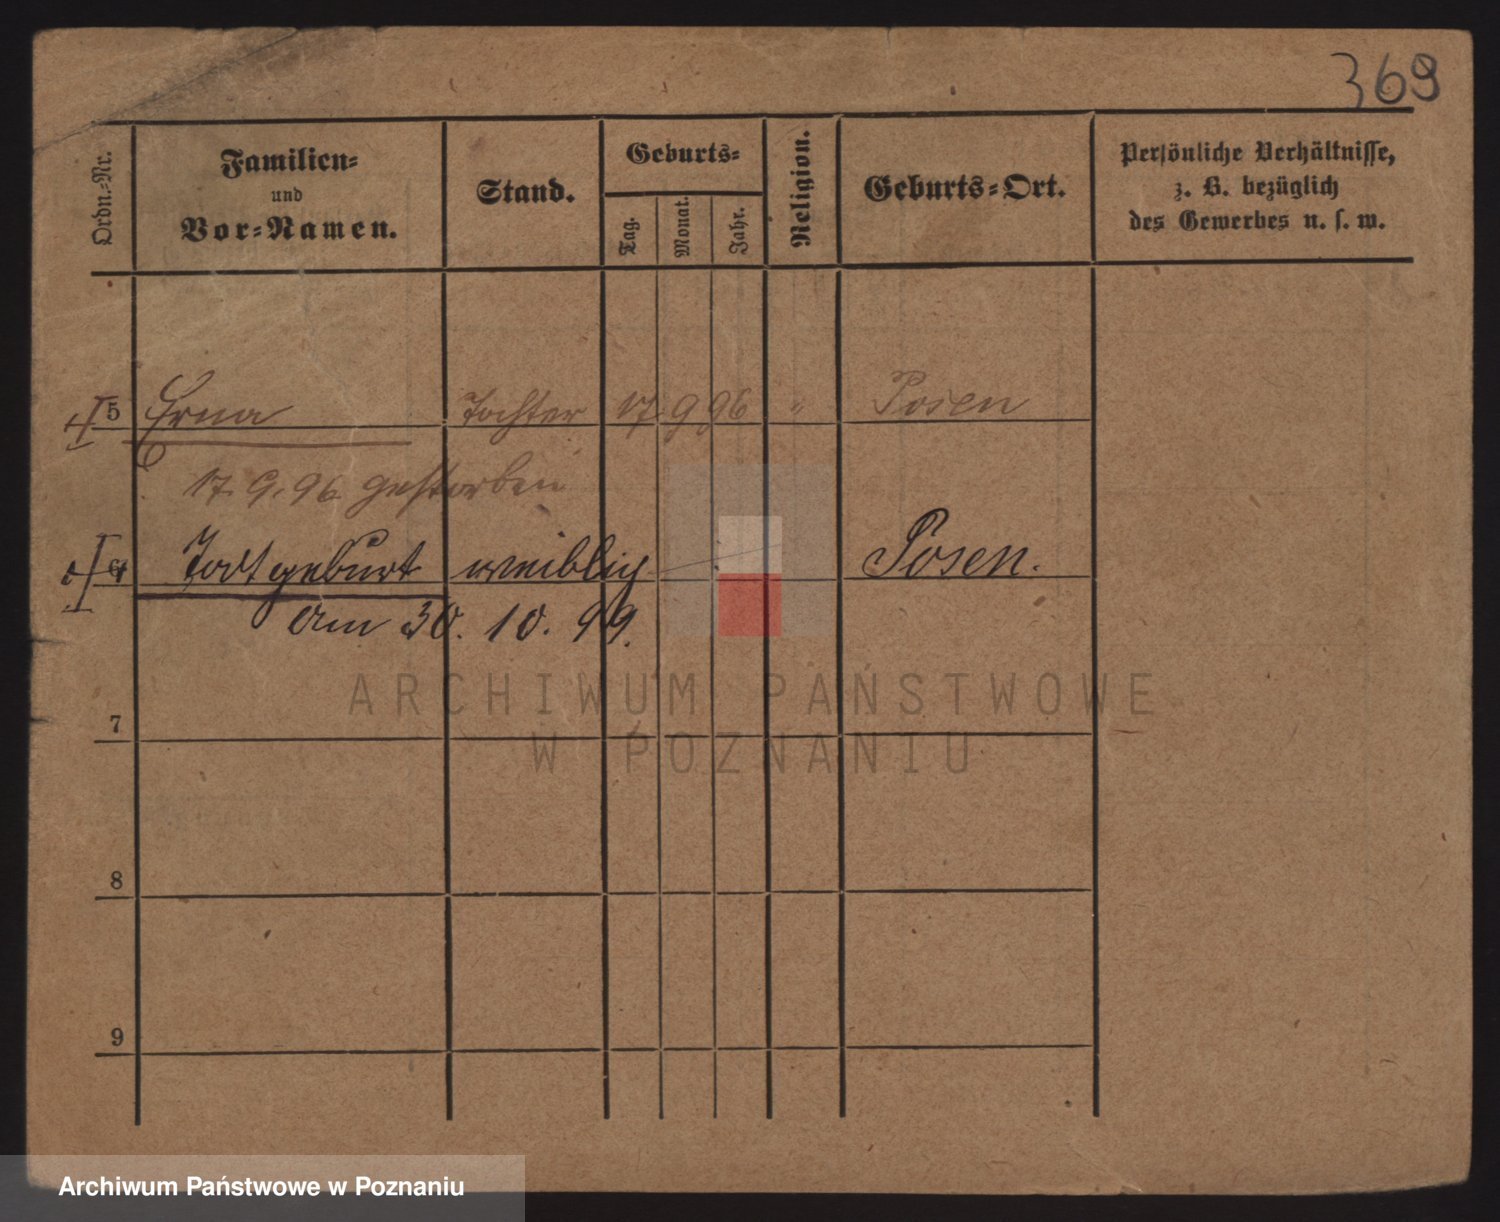 369
Ordn.-Nr.
Familien-
und
Vor-Namen.
Stand.
Geburts-
Tag.
Monat.
Jahr.
Religion.
Geburts-Ort.
Persönliche Verhältnisse,
z. B. bezüglich
des Gewerbes u. s. w.
5 Erna Tochter 17 9 96 " Posen
17. 9. 96 gestorben
6 Todtgeburt weiblich Posen.
Am 30. 10. 99.
ARCHIWUM PAŃSTWOWE
W POZNANIU
7
8
9
Archiwum Państwowe w Poznaniu